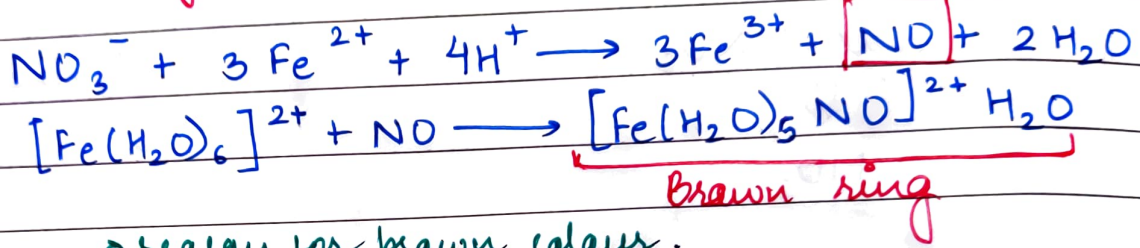 NO₃⁻ + 3 Fe²⁺ + 4H⁺ ⟶ 3Fe³⁺ + NO + 2 H₂O
[Fe(H₂O)₆]²⁺ + NO ⟶ [Fe(H₂O)₅ NO]²⁺ H₂O
Brown ring
brown colour.